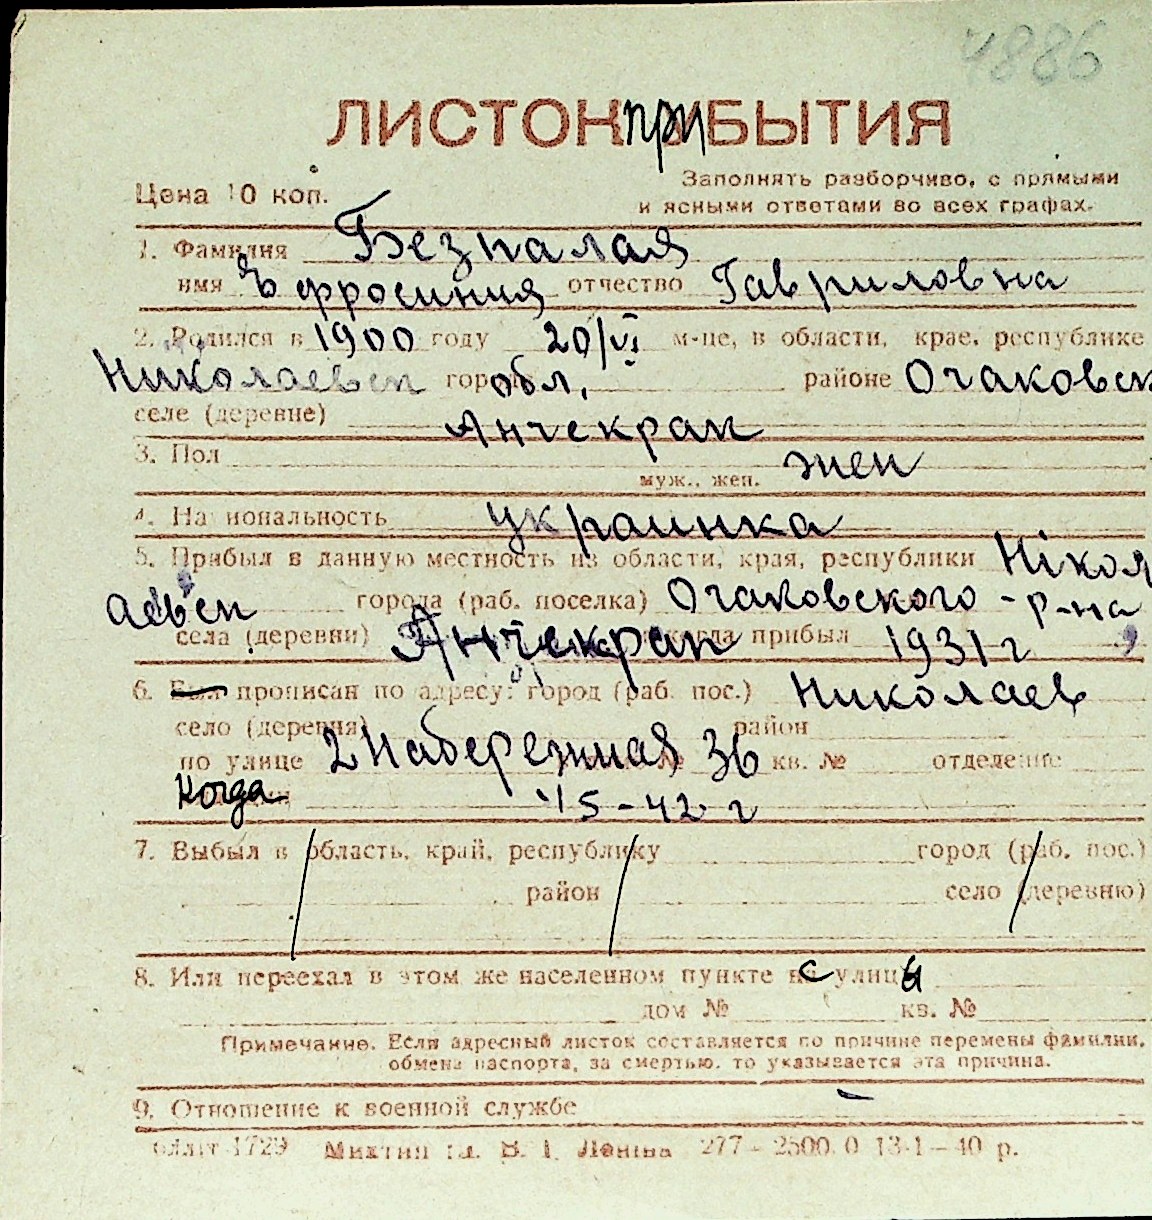 4886
ЛИСТОК ПРИБЫТИЯ
Цена 10 коп.
Заполнять разборчиво, с прямыми
и ясными ответами во всех графах.
1. Фамилия Безпалая
имя Эфросиния отчество Гавриловна
2. Родился в 1900 году 20/VI м-це, в области, крае, республике
Николаевск города обл. районе Очаковск
селе (деревне) Анчекрак
3. Пол жен
муж., жен.
4. Национальность украинка
5. Прибыл в данную местность из области, края, республики Нікола
аевск города (раб. поселка) Очаковского - р-на
села (деревни) Анчекрак когда прибыл 1931 г
6. Был прописан по адресу: город (раб. пос.) Николаев
село (деревня) район
по улице 2 Набережная № 36 кв. № отделение
Когда 15-42 г
7. Выбыл в область, край, республику город (раб. пос.)
район село (деревню)
8. Или переехал в этом же населенном пункте с улицы
дом № кв. №
Примечание. Если адресный листок составляется по причине перемены фамилии,
обмена паспорта, за смертью, то указывается эта причина.
9. Отношение к военной службе —
Обліт 1729 Миктип ім. В. І. Леніна 277-2500.0 13-1-40 р.